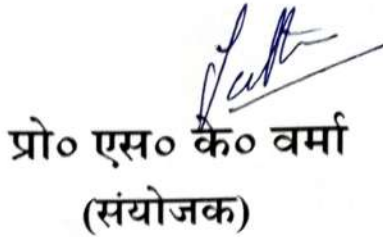 प्रो० एस० के० वर्मा
(संयोजक)